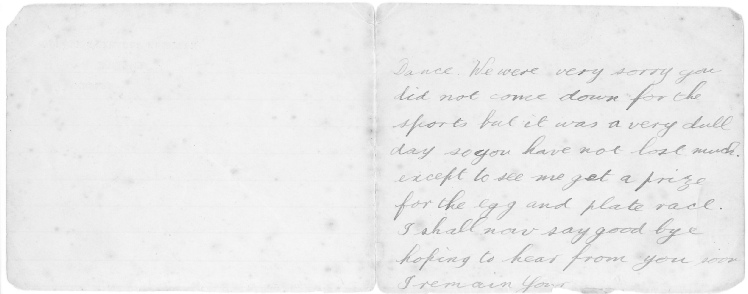 Dance. We were very sorry you
did not come down for the
sports but it was a very dull
day so you have not lost much.
except to see me get a prize
for the egg and plate race.
I shall now say good bye
hoping to hear from you soon
I remain Your